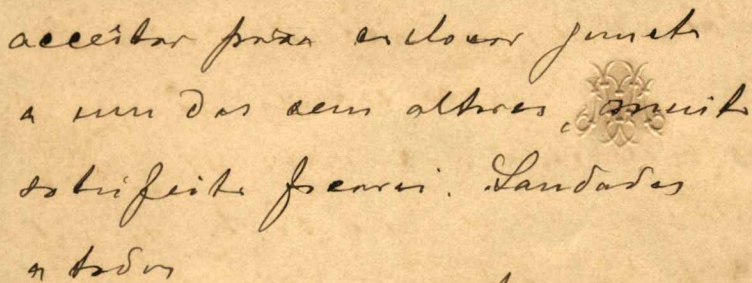 acceitar para collocar junto
a um dos seus altares, muito
satisfeito ficarei. Saudades
a todos